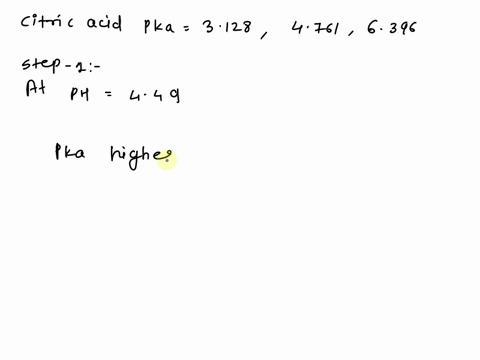 citric acid pka = 3.128, 4.761, 6.396
step-1:-
At PH = 4.49
Pka highe